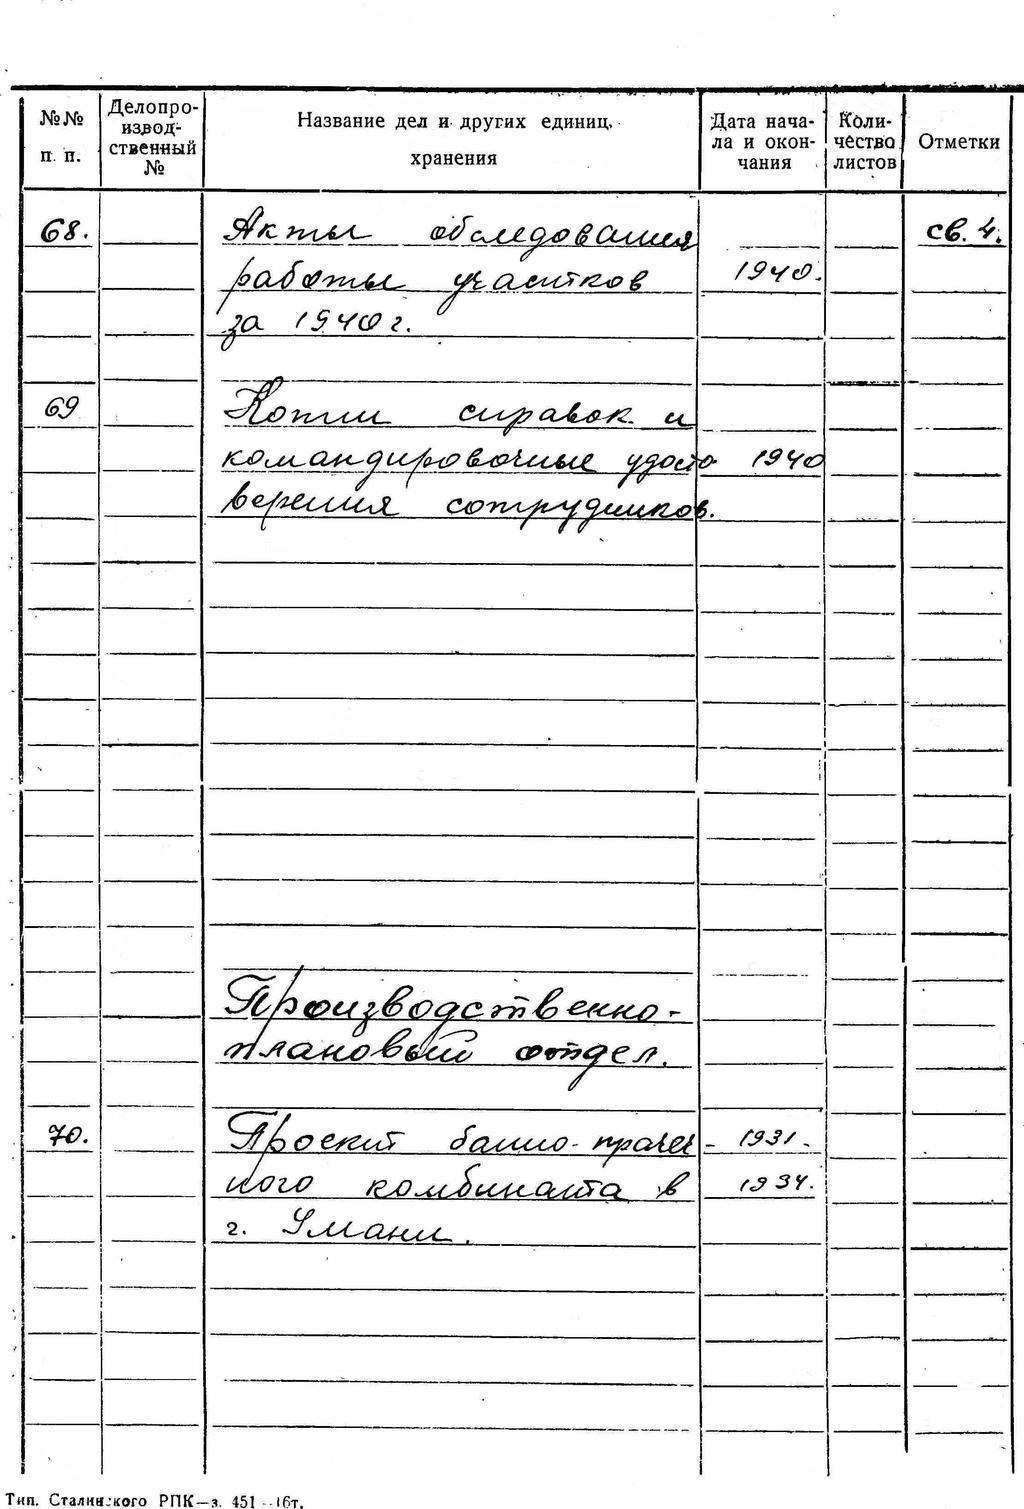 №№ п. п.
Делопро-
извод-
ственный
№
Название дел и других единиц
хранения
Дата нача-
ла и окон-
чания
Коли-
чество
листов
Отметки
68. Акты обследования св. 4.
работы участков 1940.
за 1940 г.
69 Копии справок и
командировочные удосто 1940
верения сотрудников.
Производственно-
плановый отдел.
70. Проект банно-прачеч - 1931-
ного комбината в 1934.
г. Умани.
Тип. Сталинского РПК—з. 451—16т.